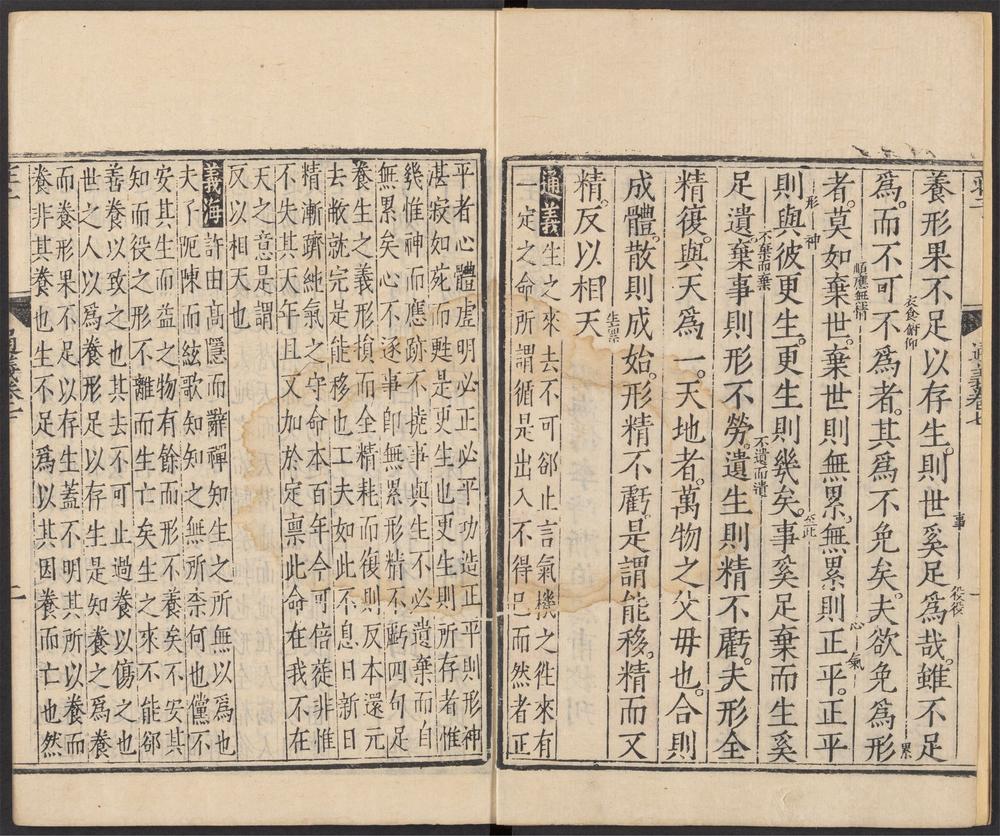 養形果不足以存生。則世奚足爲哉。雖不足
事
役役
累
爲。而不可不爲者。其爲不免矣。夫欲免爲形
衣食俯仰
者。莫如棄世。棄世則無累。無累則正平。正平
順應無情
心
氣
則與彼更生。更生則幾矣。事奚足棄而生奚
形
神
至此
足遺。棄事則形不勞。遺生則精不虧。夫形全
不棄而棄
不遺而遺
精復。與天爲一。天地者。萬物之父母也。合則
成體。散則成始。形精不虧。是謂能移。精而又
生累
精。反以相天
通義 生之來去不可郤止言氣機之徃來有
一定之命所謂循是出入不得已而然者正
平者心體虛明必正必平功造正平則形神
湛寂如死而甦是更生也更生則所存者惟
幾惟神而應跡不撓事與生不必遺棄而自
無累矣心不逐事卽無累形精不虧四句足
養生之義形損而全精耗而復則反本還元
去敝就完是能移也工夫如此不息日新日
精漸躋純氣之守命本百年今可倍蓰非惟
不失其天年且又加於定禀此命在我不在
天之意是謂
反以相天也
義海 許由高隱而辭禪知生之所無以爲也
夫子阨陳而絃歌知知之無所柰何也儻不
知而役之形不離而生亡矣生之來不能郤
安其生而益之物有餘而形不養矣不安其
善養以致之也其去不可止過養以傷之也
世之人以爲養形足以存生是知養之爲養
而養形果不足以存生蓋不明其所以養而
養非其養也生不足爲以其因養而亡也然